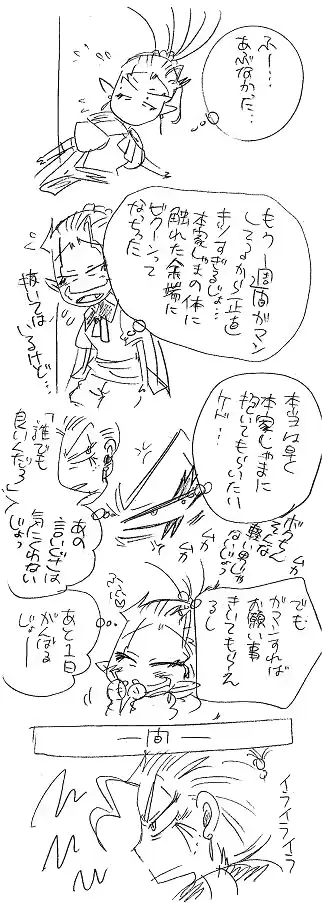 ふー…
あぶなかった…
もう一週間ガマン
してるから正直
キツすぎるじょ…
本家じゃまの体に
触れた余端に
ゼクーンって
なっちった
抜いては
いるけど…
本当は早く
本家じゃまに
抱いてもらいたい
ケド…
「誰でも
良いんだろ」
ボクちん
そんな
軽い男じゃ
ないじょ
ムカ
ムカ
あの
言いぐさは
気にくわない
じょっ
でも
ガマンすれば
お願い事
きいてもらえ
るし
あと1日
がんばる
じょー
一間一
イライライラ